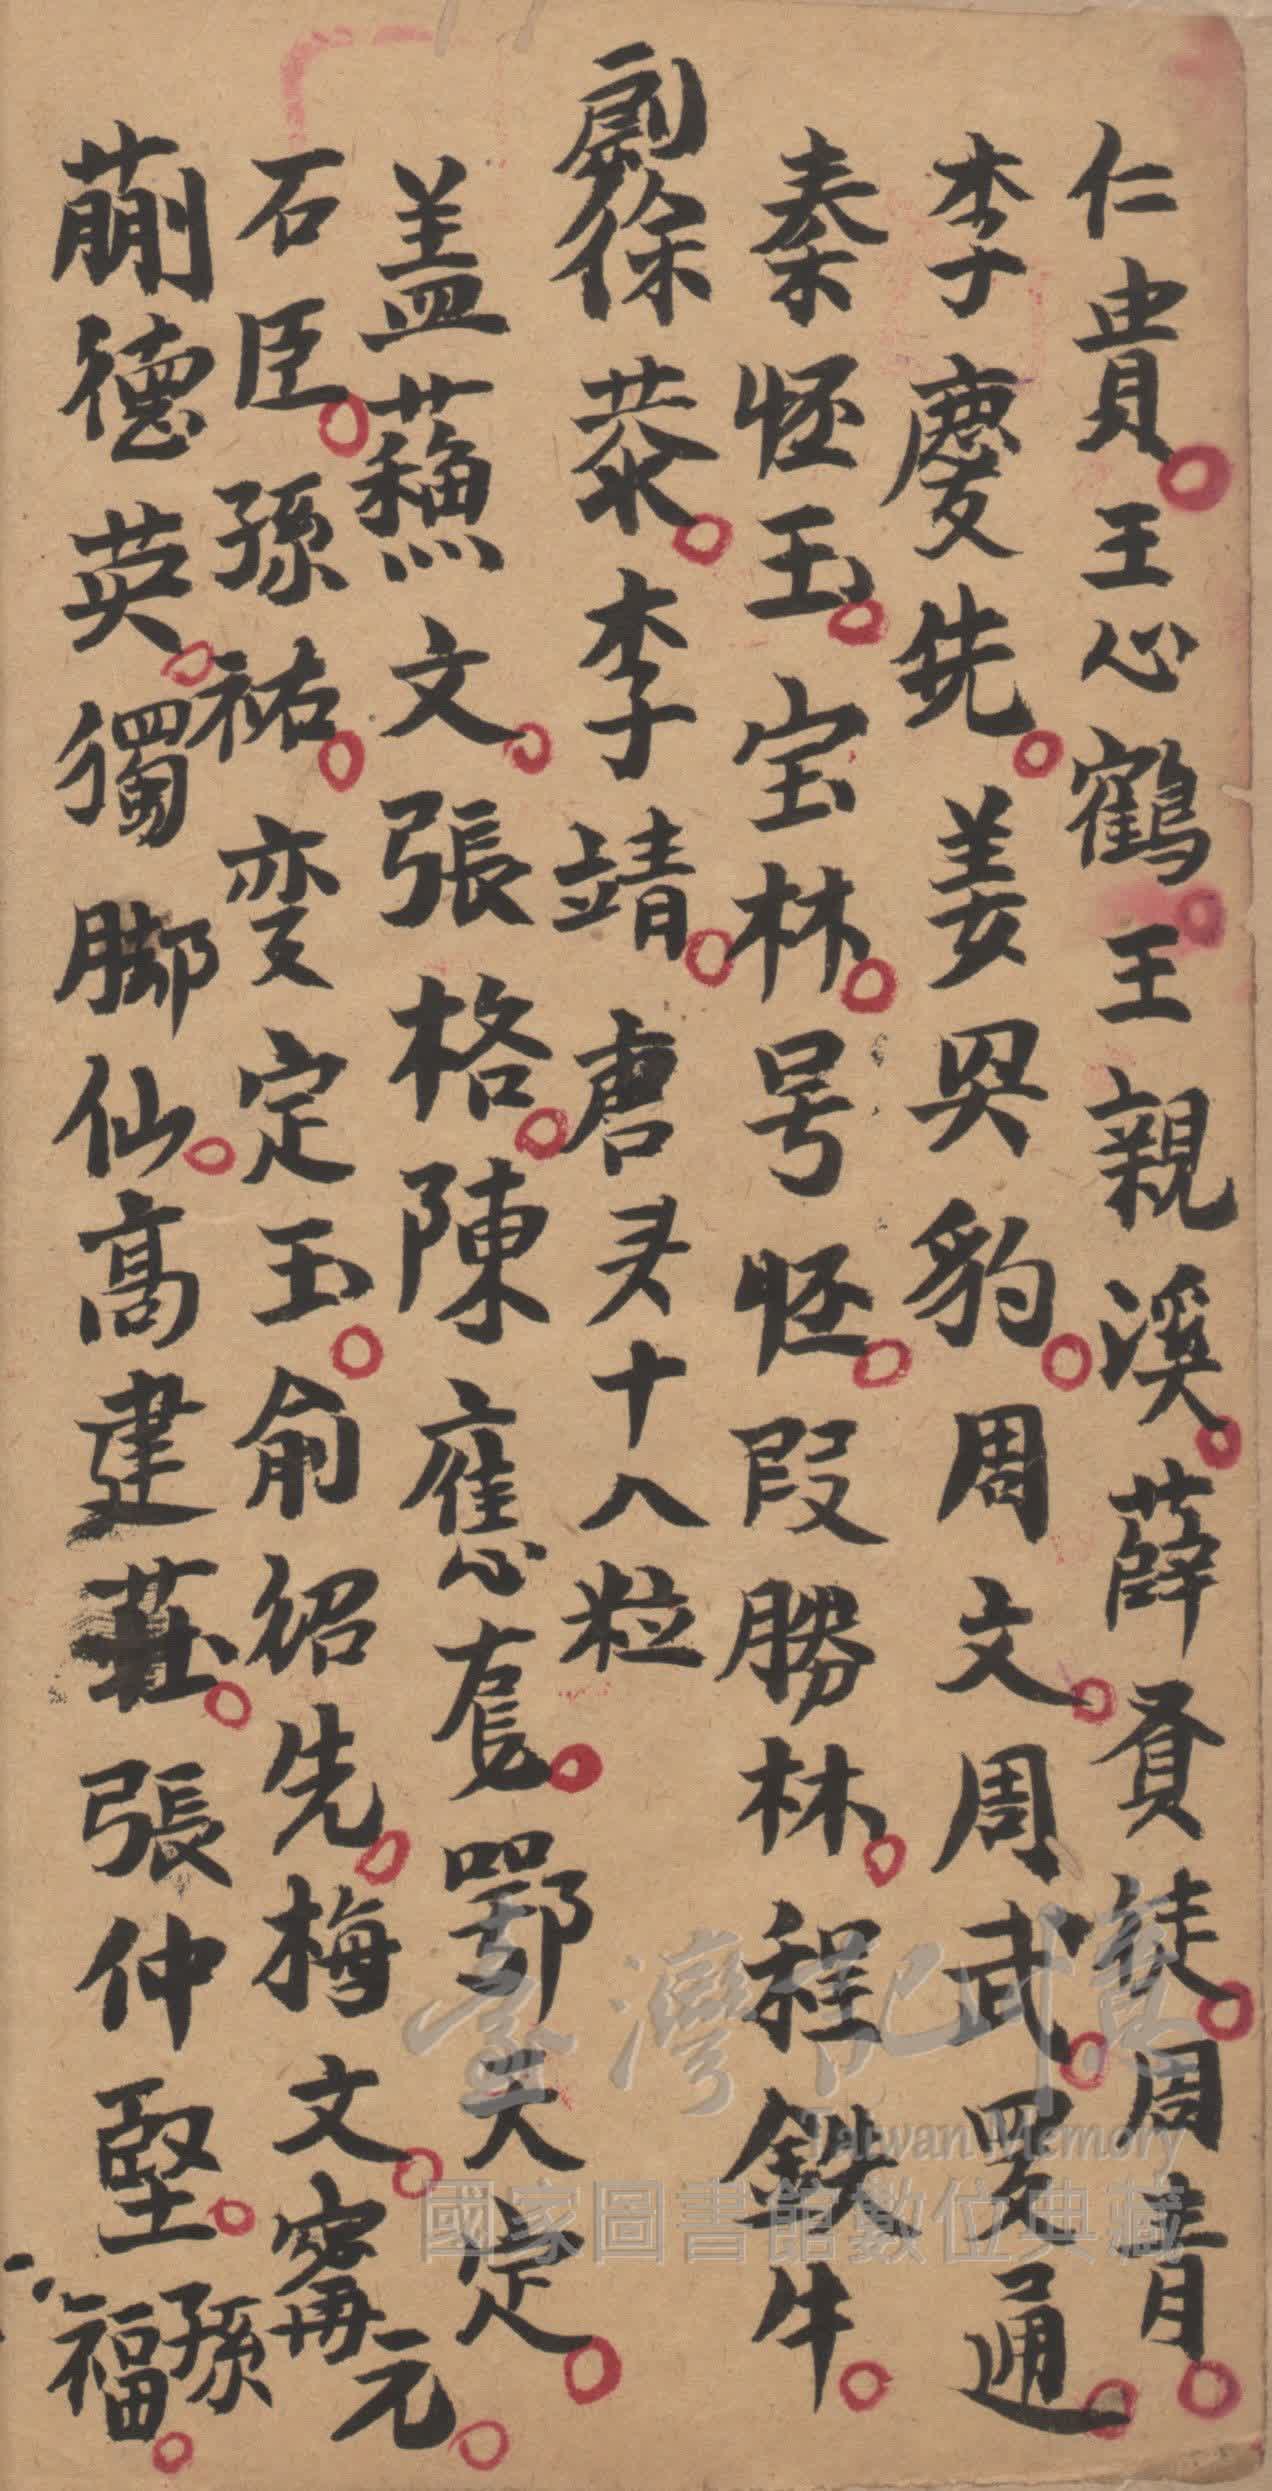 仁貴王心鶴王親溪薛賢徒周青
李慶先姜興豹周文周武羅通
秦怪玉宝林号怪段勝林程鉄牛
劇徐恭李靖唐灵十八粒
盖蘓文張格陳應龍鄂天定
石臣孫祐变定玉俞紹先梅文甯元
蒯德英獨脚仙高建莊張仲堅孫福
臺灣記憶
Taiwan Memory
國家圖書館數位典藏